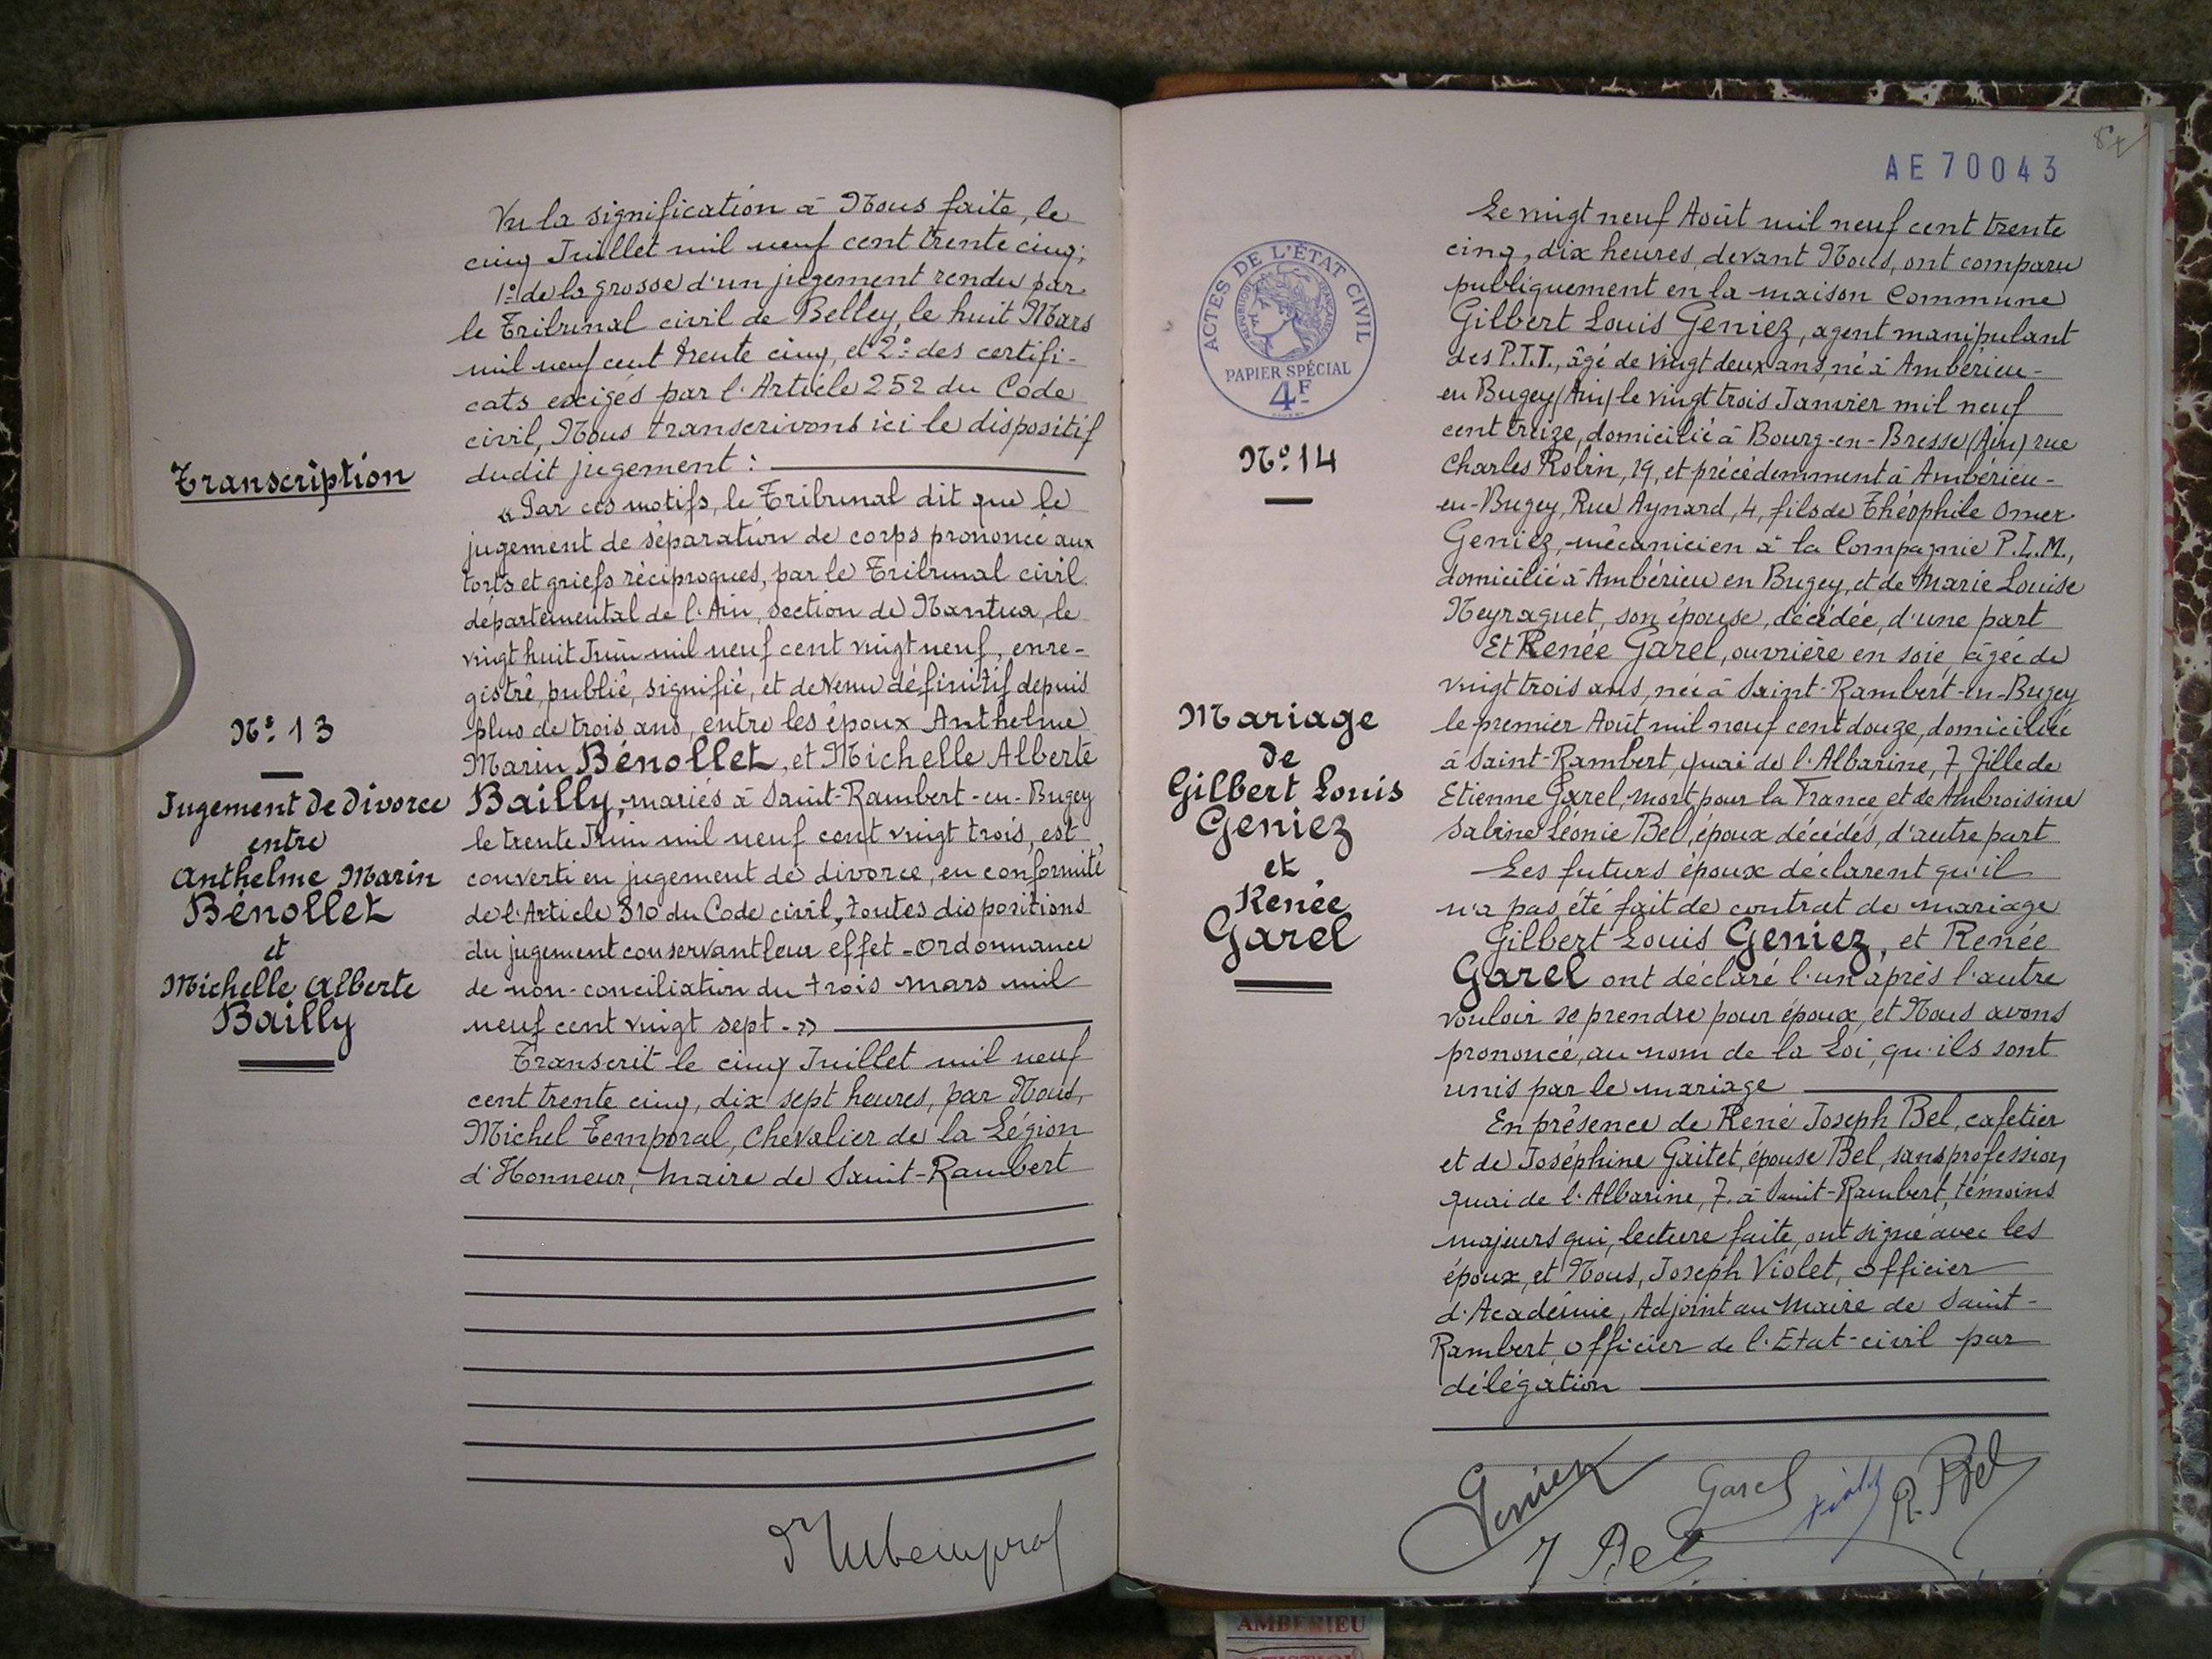 Transcription
N° 13
Jugement de divorce
entre
Anthelme Marin
Bénollet
et
Michelle Alberte
Bailly
Vu la signification à Nous faite, le
cinq Juillet mil neuf cent trente cinq;
1° de la grosse d'un jugement rendu par
le Tribunal civil de Belley, le huit Mars
mil neuf cent trente cinq, et 2° des certifi-
cats exigés par l'Article 252 du Code
civil, Nous transcrivons ici le dispositif
dudit jugement :
« Par ces motifs, le Tribunal dit que le
jugement de séparation de corps prononcé aux
torts et griefs réciproques, par le Tribunal civil
départemental de l'Ain, section de Nantua, le
vingt huit Juin mil neuf cent vingt neuf, enre-
gistré, publié, signifié, et devenu définitif depuis
plus de trois ans, entre les époux Anthelme
Marin Bénollet, et Michelle Alberte
Bailly, mariés à Saint-Rambert-en-Bugey
le trente Juin mil neuf cent vingt trois, est
converti en jugement de divorce, en conformité
de l'Article 310 du Code civil, toutes dispositions
du jugement conservant leur effet - Ordonnance
de non-conciliation du trois mars mil
neuf cent vingt sept - »
Transcrit le cinq Juillet mil neuf
cent trente cinq, dix sept heures, par Nous,
Michel Temporal, Chevalier de la Légion
d'Honneur, Maire de Saint-Rambert
AE 70043
ACTES DE L'ÉTAT CIVIL
RÉPUBLIQUE FRANÇAISE
PAPIER SPÉCIAL
4F
N° 14
Mariage
de
Gilbert Louis
Geniez
et
Renée
Garel
Le vingt neuf Août mil neuf cent trente
cinq, dix heures, devant Nous, ont comparu
publiquement en la maison Commune
Gilbert Louis Geniez, agent manipulant
des P.T.T., âgé de vingt deux ans, né à Ambérieu-
en Bugey (Ain) le vingt trois Janvier mil neuf
cent treize, domicilié à Bourg-en-Bresse (Ain) rue
Charles Robin, 19, et précédemment à Ambérieu-
en-Bugey, Rue Aynard, 4, fils de Théophile Omer
Geniez, mécanicien à la Compagnie P.L.M.,
domicilié à Ambérieu en Bugey, et de Marie Louise
Neyraguet, son épouse, décédée, d'une part
Et Renée Garel, ouvrière en soie, âgée de
vingt trois ans, née à Saint-Rambert-en-Bugey
le premier Août mil neuf cent douze, domiciliée
à Saint-Rambert, quai de l'Albarine, 7, fille de
Etienne Garel, mort pour la France, et de Ambroisine
Sabine Léonie Bel, époux décédés, d'autre part
Les futurs époux déclarent qu'il
n'a pas été fait de contrat de mariage
Gilbert Louis Geniez, et Renée
Garel ont déclaré l'un après l'autre
vouloir se prendre pour époux, et Nous avons
prononcé, au nom de la Loi, qu'ils sont
unis par le mariage
En présence de René Joseph Bel, cafetier
et de Joséphine Gaitet, épouse Bel, sans profession,
quai de l'Albarine, 7. à Saint-Rambert, témoins
majeurs qui, lecture faite, ont signé avec les
époux, et Nous, Joseph Violet, Officier
d'Académie, Adjoint au Maire de Saint-
Rambert, Officier de l'Etat-civil par
délégation
Geniez
Garel
Violet
R. Bel
J Bel
AMBERIEU